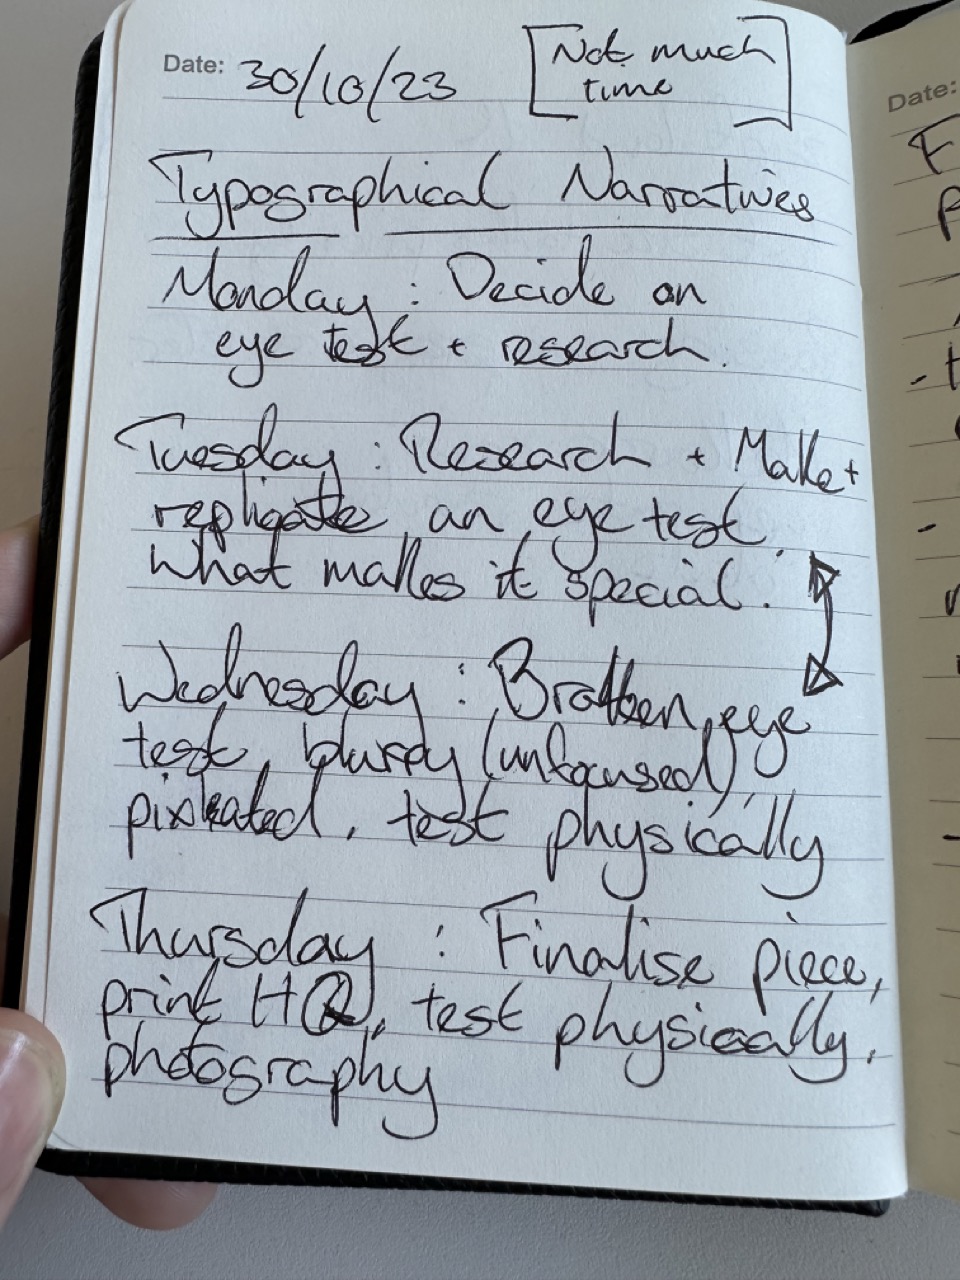 Date: 30/10/23 [Not much
time]
Typographical Narratives
Monday : Decide on
eye test + research.
Tuesday : Research + Make +
replicate an eye test.
What makes it special.
Wednesday : Broken, eye
test, blurry (unfocused),
pixleated, test physically
Thursday : Finalise piece,
print HQ, test physically,
photography
Date: